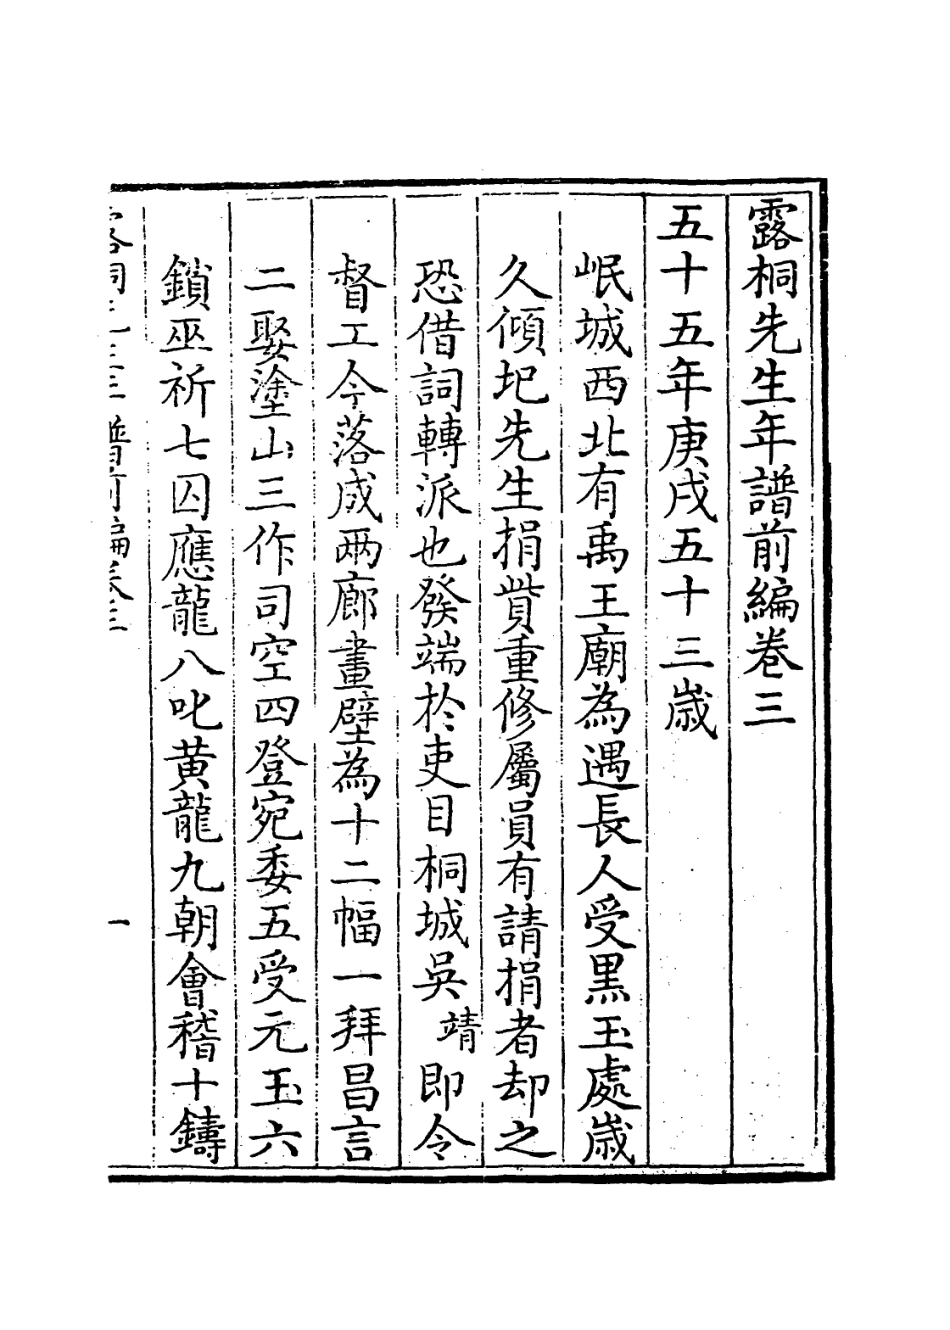 露桐先生年譜前編卷三
五十五年庚戌五十三歲
岷城西北有禹王廟為遇長人受黑玉處歲
久傾圮先生捐貲重修屬員有請捐者却之
恐借詞轉派也發端於吏目桐城吳靖即令
督工今落成兩廊畫壁為十二幅一拜昌言
二娶塗山三作司空四登宛委五受元玉六
鎖巫祈七囚應龍八叱黃龍九朝會稽十鑄
譜前編卷三
一